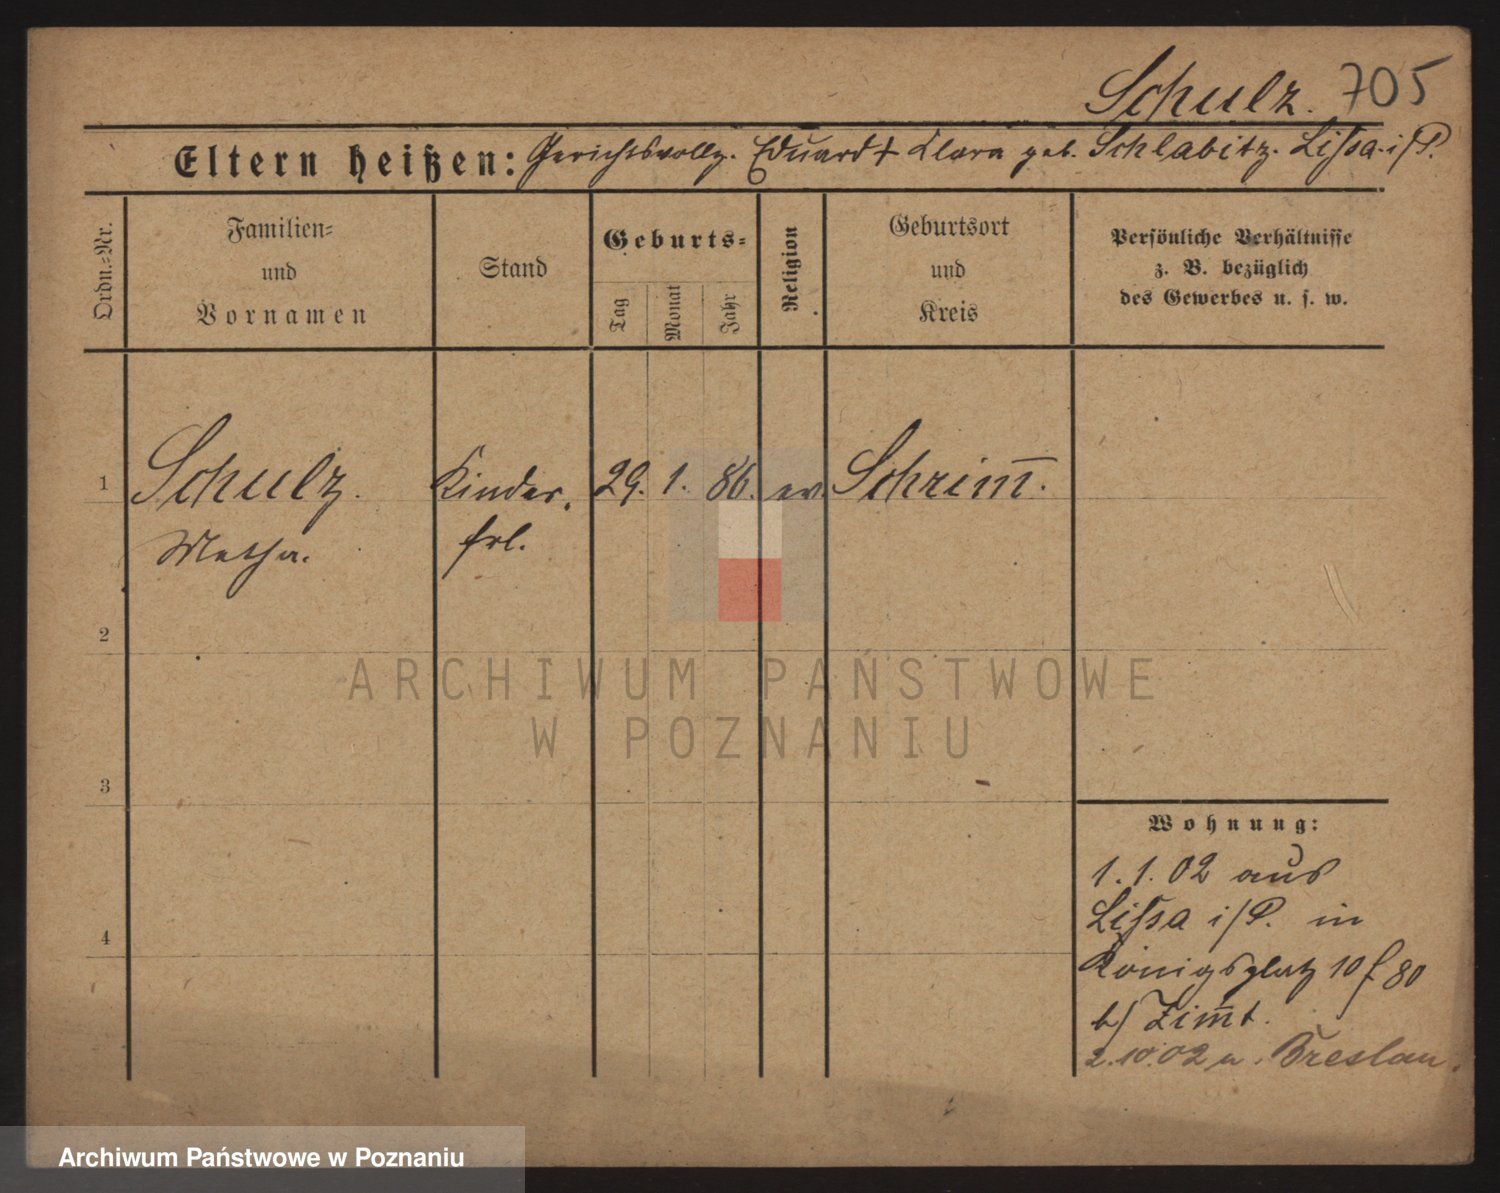 Schulz. 705
Eltern heißen: Gerichtsvollz. Eduard † Klara geb. Schlabitz. Lissa i/P.
Ordn.-Nr.
Familien-
und
Vornamen
Stand
Geburts-
Tag
Monat
Jahr
Religion
Geburtsort
und
Kreis
Persönliche Verhältnisse
z. B. bezüglich
des Gewerbes u. s. w.
1 Schulz. Kinder- 29. 1. 86. ev. Schrim̅.
Metha. frl.
2
3
4
Wohnung:
1.1.02 aus
Lissa i/P. in
Königsplatz 10 f 80
b/ Zim̅t.
2.10.02 n. Breslau.
ARCHIWUM PAŃSTWOWE
W POZNANIU
Archiwum Państwowe w Poznaniu